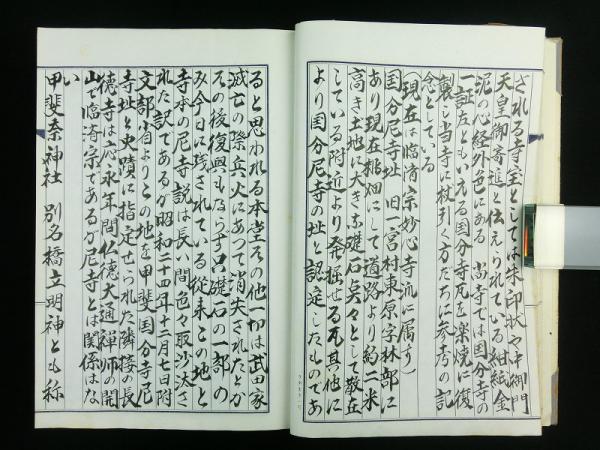 ざれる寺宝としては朱印状や中御門
天皇御寄進と伝えられている紺紙金
泥の心経外色にある 当寺では国分寺の
一証左ともいえる国分寺瓦を楽焼に復
製し当寺に杖引く方だちに参考の記
念としている
(現在は臨済宗妙心寺派に属す)
国分尼寺址 旧一宮村東原字林部に
あり現在桃畑にして道路より約二米
高き土地に大きな礎石点々として散在
している附近より発掘せる瓦其他に
より国分尼寺の址と認定したものであ
ると思われる本堂その他一切は武田家
滅亡の際兵火にあつて消失されたとか
その後復興もならず只礎石の一部の
み今日に残されている 従来この地と
寺本の尼寺説は長い間色々取沙汰さ
れた訳であるが昭和二十四年十二月七日附
文部省よりこの地を甲斐国分寺尼
寺址と史蹟に指定せられた隣接の長
徳寺は応永年間仏徳大通禅師の開
山で臨済宗であるが尼寺とは関係はな
い
甲斐奈神社 別名橋立明神とも称